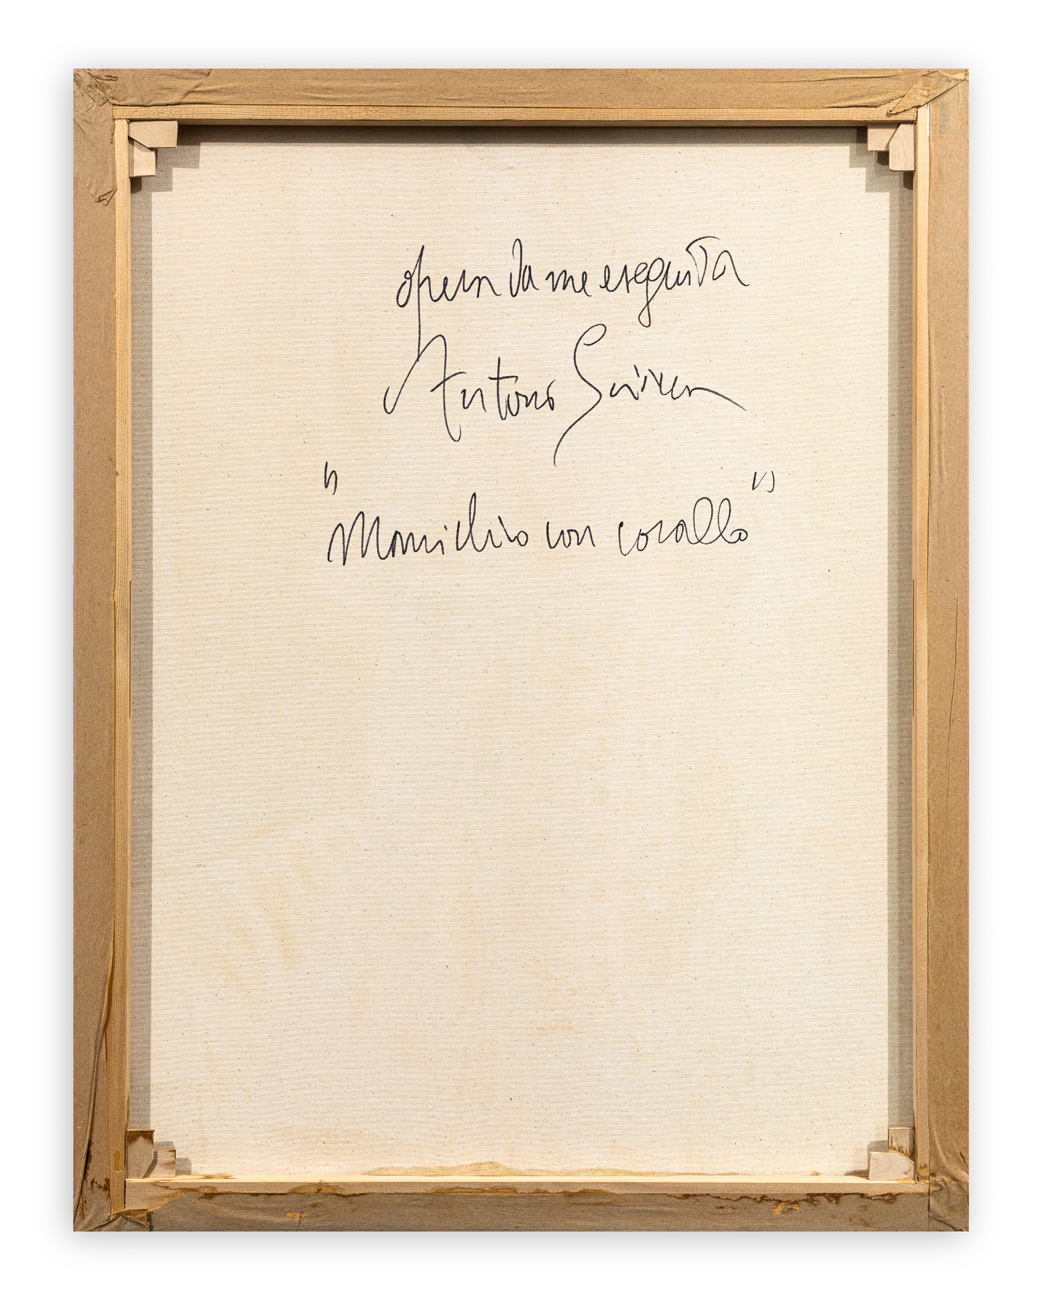 opera da me eseguita
Antonio Sciacca
"Manichino con corallo"